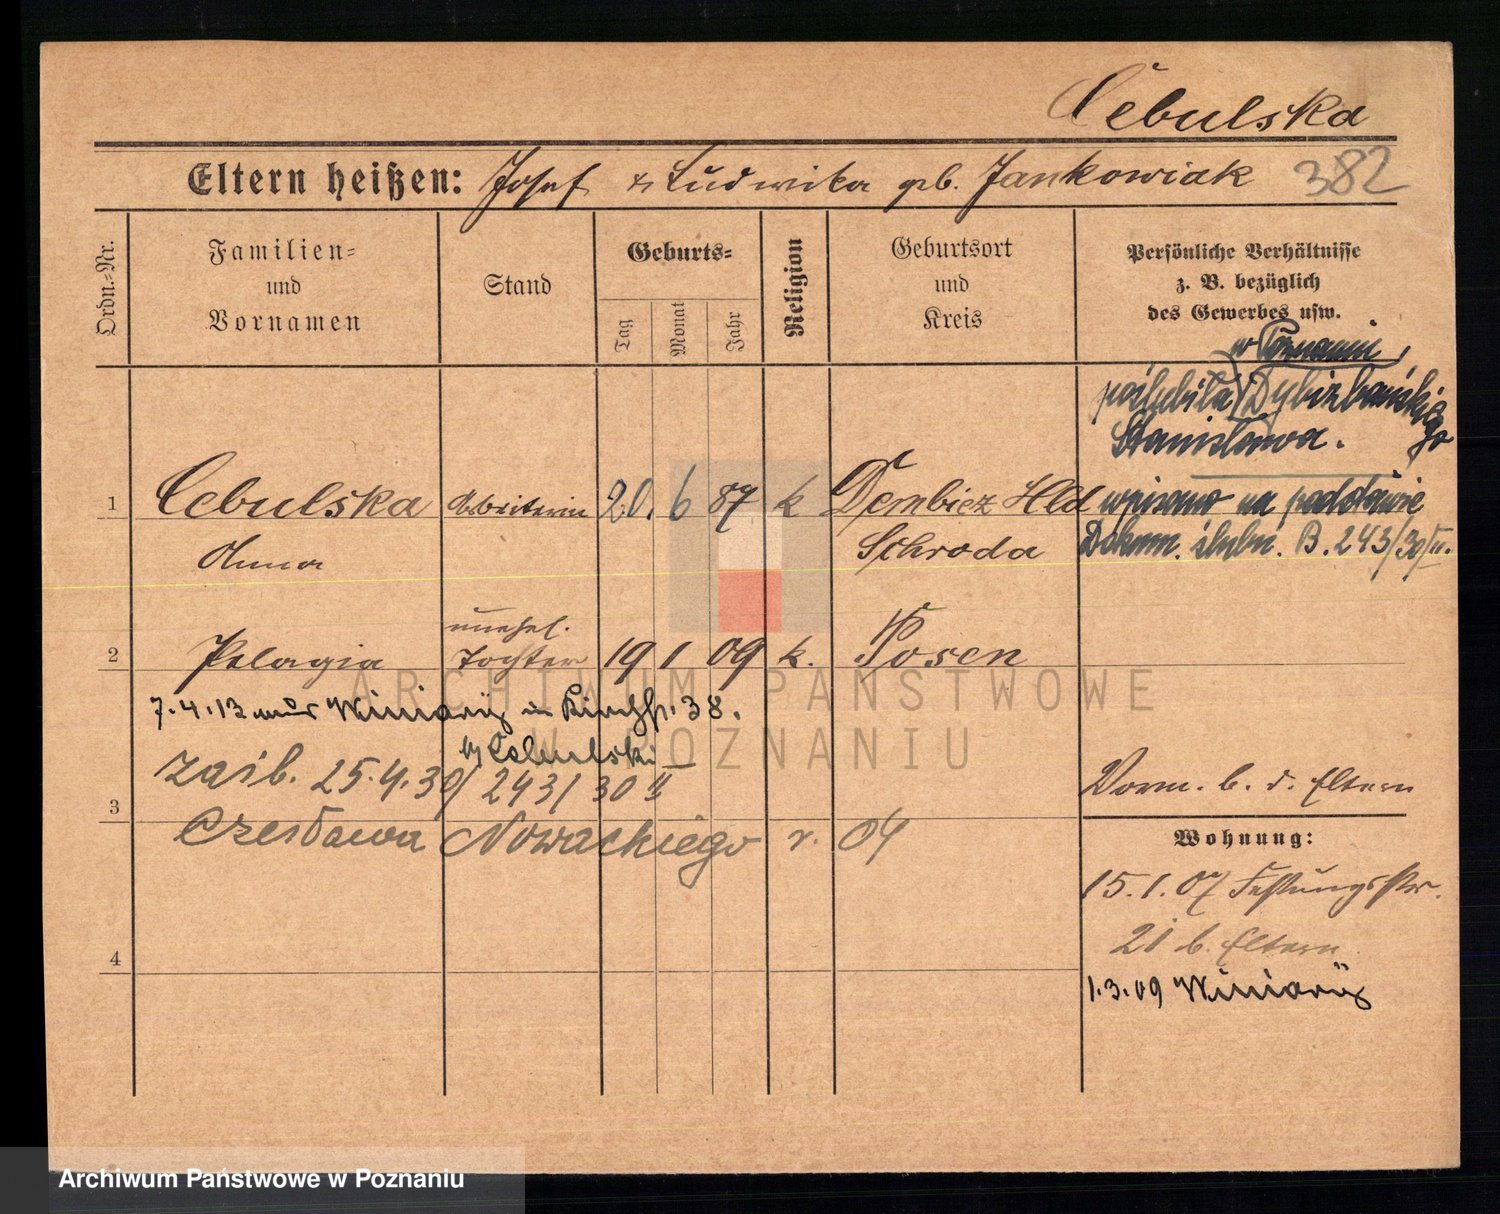 Cebulska
Eltern heißen: Josef u. Ludwika geb. Jankowiak 382
Ordn.-Nr.
Familien=
und
Vornamen
Stand
Geburts=
Tag
Monat
Jahr
Religion
Geburtsort
und
Kreis
Persönliche Verhältnisse
z. B. bezüglich
des Gewerbes usw.
w Poznaniu
poślubiła Dybizbańskiego
Stanisława.
1 Cebulska Arbeiterin 20. 6 87 k Dembicz Hld
Anna Schroda
wpisano na podstawie
Dokum. ślubn. B. 243/30/II.
unehel.
2 Pelagia Tochter 19 1 09 k. Posen
7.4.13 nur Winiary in Kirchstr. 38.
by Cebulski
zaśl. 25.4.30/243/30 II
3 Czesława Nowackiego r. 04
Vorm. b. d. Eltern
Wohnung:
15.1.07 Festungsstr.
21 b. Eltern
4
1.3.09 Winiary
ARCHIWUM PAŃSTWOWE
W POZNANIU
Archiwum Państwowe w Poznaniu